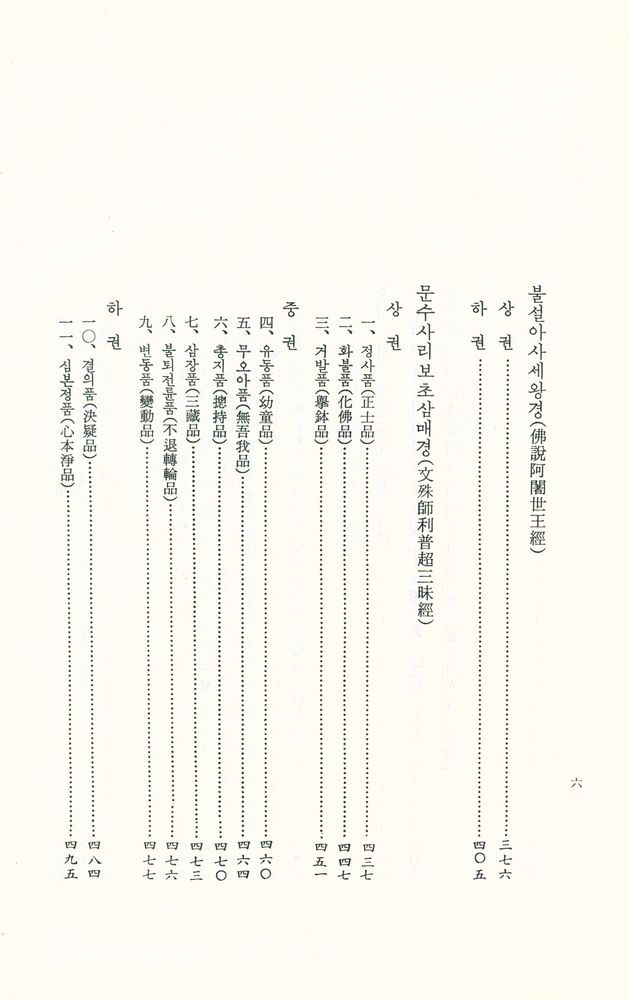 불설아사세왕경(佛說阿闍世王經)
상 권 ⋯⋯⋯⋯ 三七六
하 권 ⋯⋯⋯⋯ 四〇五
문수사리보초삼매경(文殊師利普超三昧經)
상 권
一、정사품(正士品) ⋯⋯⋯⋯ 四三七
二、화불품(化佛品) ⋯⋯⋯⋯ 四四七
三、거발품(擧鉢品) ⋯⋯⋯⋯ 四五一
중 권
四、유동품(幼童品) ⋯⋯⋯⋯ 四六〇
五、무오아품(無吾我品) ⋯⋯⋯⋯ 四六四
六、총지품(摠持品) ⋯⋯⋯⋯ 四七〇
七、삼장품(三藏品) ⋯⋯⋯⋯ 四七三
八、불퇴전륜품(不退轉輪品) ⋯⋯⋯⋯ 四七六
九、변동품(變動品) ⋯⋯⋯⋯ 四七七
하 권
一〇、결의품(決疑品) ⋯⋯⋯⋯ 四八四
一一、심본정품(心本淨品) ⋯⋯⋯⋯ 四九五
六